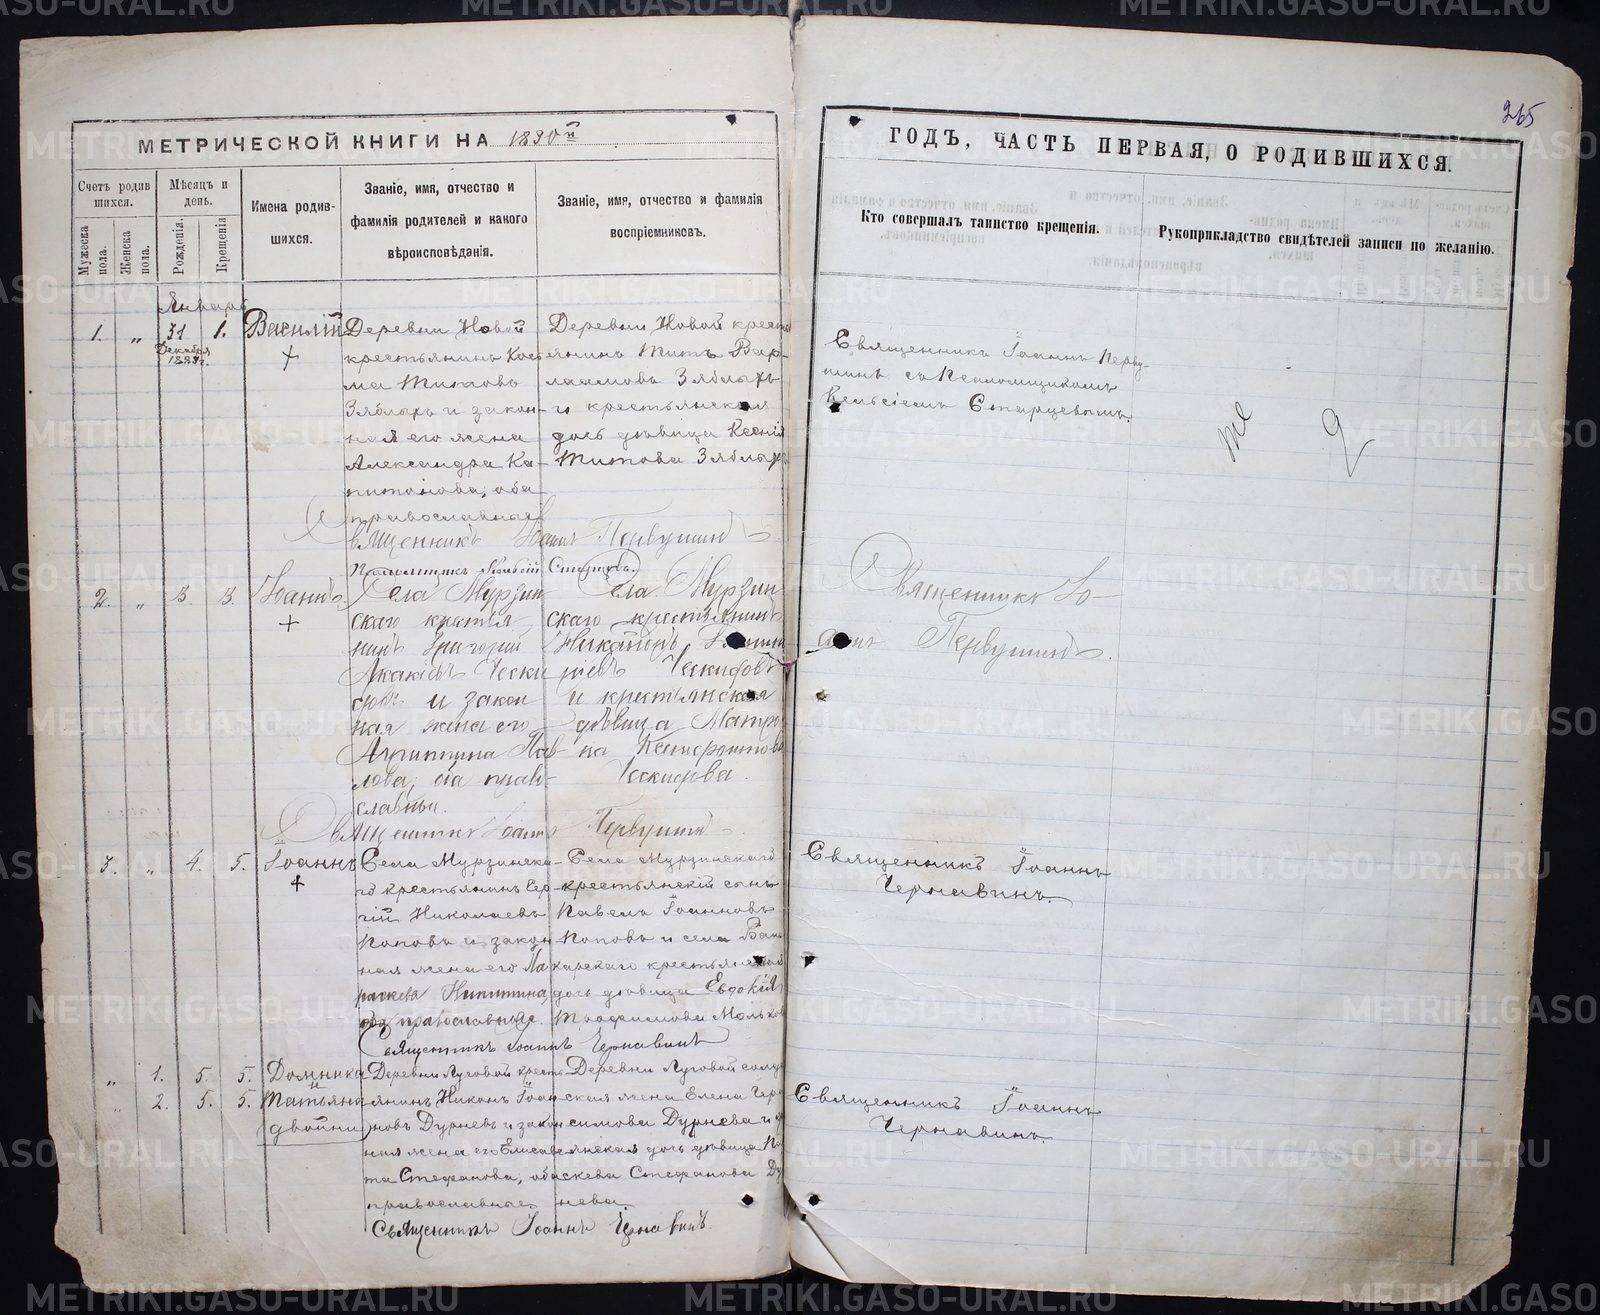 265
МЕТРИЧЕСКОЙ КНИГИ НА 1890й
ГОДЪ, ЧАСТЬ ПЕРВАЯ, О РОДИВШИХСЯ.
Счетъ родив
шихся.
Мужеска
пола.
Женска
пола.
Мѣсяцъ и
день.
Рожденія.
Крещенія
Имена родив-
шихся.
Званіе, имя, отчество и
фамилія родителей и какого
вѣроисповѣданія.
Званіе, имя, отчество и фамилія
воспріемниковъ.
Кто совершалъ таинство крещенія.
Рукоприкладство свидѣтелей записи по желанію.
Январь
1. „ 31 1. Василій
Декабря
1889г.
Деревни Новой
крестьянинъ Кось
ма Титовъ
Зяблыхъ и закон-
ная его жена
Александра Ка-
питонова, оба
православные
Деревни Новой кресть
янинъ Титъ Вар-
лаамовъ Зяблыхъ
и крестьянская
дочь дѣвица Ксенія
Титова Зяблыхъ
Священникъ Іоаннъ Перву-
шинъ съ Псаломщикомъ
Кельсіемъ Старцевымъ.
Священникъ Іоаннъ Первушинъ
Псаломщикъ Кельсій Старцевъ.
2. „ 3. 3. Іоаннъ
Села Мурзин
скаго крестья
нинъ Григорій
Акакіевъ
и закон
ная жена его
Пав-
лова, оба право-
славные.
Села Мурзин
скаго крестьянинъ
и крестьянская
дѣвица Матро
на
Священникъ Іо-
аннъ Первушинъ.
Священникъ Іоаннъ Первушинъ.
3. „ 4. 5. Іоаннъ
Села Мурзинска-
го крестьянинъ Сер-
гій Николаевъ
Поповъ и закон-
ная жена его Па
раскева Никитина,
оба православные.
Села Мурзинскаго
крестьянскій сынъ
Павелъ Іоанновъ
Поповъ и села Баш
карскаго крестьянская
дочь дѣвица Евдокія
Трофимова
Священникъ Іоаннъ
Чернавинъ
Священникъ Іоаннъ Чернавинъ
„ 1. 5. 5. Домника
и
„ 2. 5. 5. Татьяна
двойни
Деревни Луговой кресть
янинъ Никонъ Іоан
новъ Дурневъ и закон
ная жена его Елисаве
та Стефанова, оба
православные
Деревни Луговой солдат
ская жена Елена Гера
симова Дурнева и кр
янская дочь дѣвица Па
раскева Стефанова Дур
нева
Священникъ Іоаннъ
Чернавинъ.
Священникъ Іоаннъ Чернавинъ.
METRIKI.GASO-URAL.RU